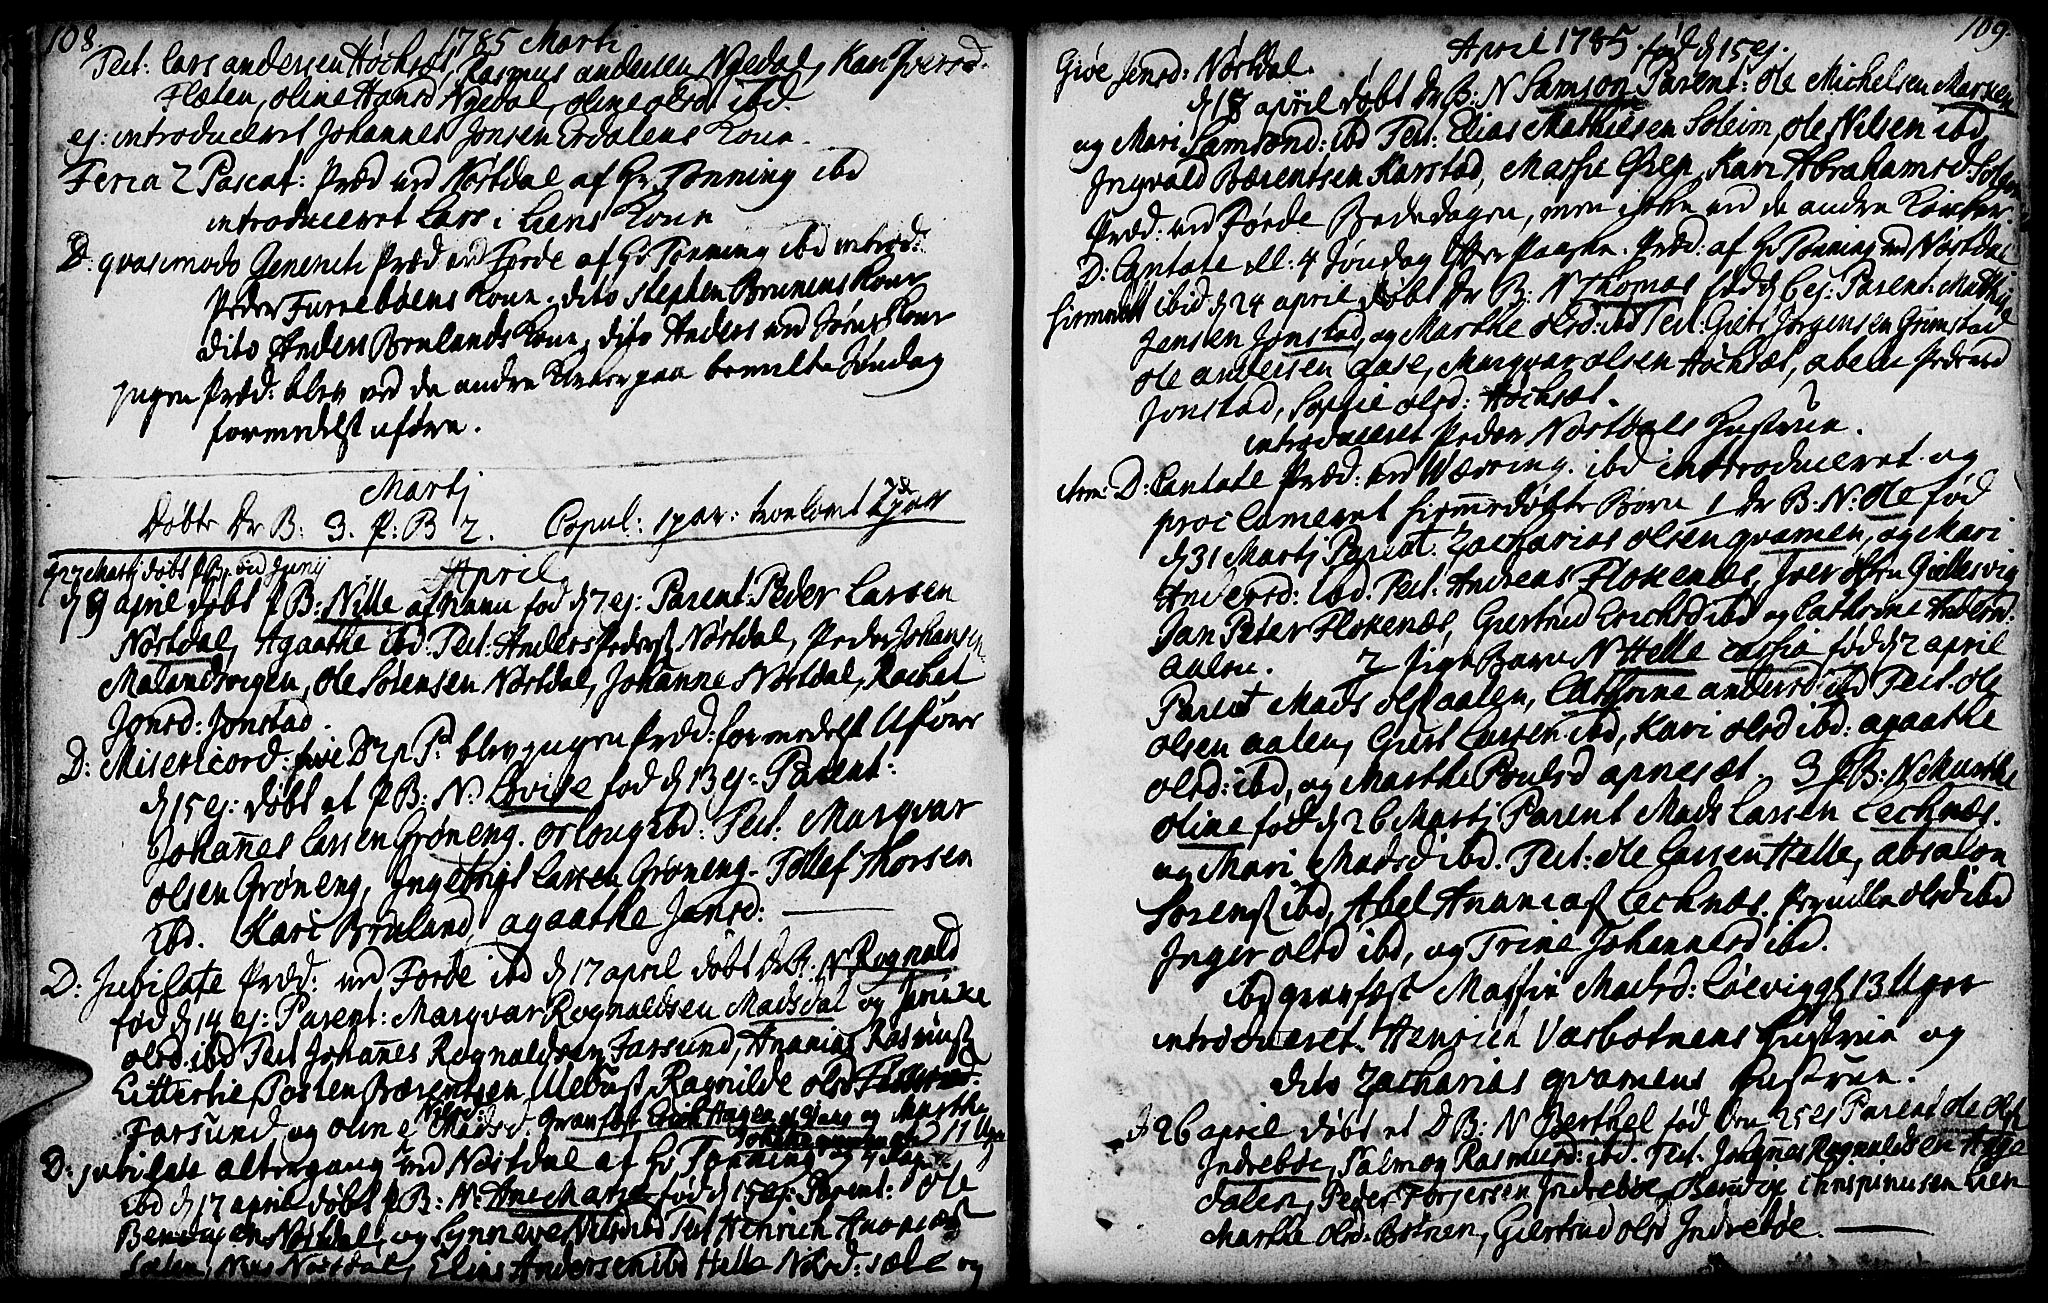 108.
1785 Marti
Test: Lars andersen Höchsæt, Rasmus andersen Nyedal, Kari Iversd:
Flæten, oline Hansd Nyedal, oline olsd ibd
ej: introduceret Johannes Jonsen Erdalens Kone.
Feria 2 Pascat: Præd ved Nørdal af Hr Tønning ibd
introduceret Lars i Liens Kone
D: qvasimodo Geneniti Præd ved Førde af Hr Tønning ibd introd:
Peder Furebøens Kone, dito Stephen Brunens Kone
dito Anders Brulands Kone, dito Anders ved Kone
Ingen Præd: blev ved de andre Kirker paa bemelte Søndag
formedelst uføre.
Martj
Døbte Dr B: 3. P: B 2. Copul: 1 par: trolovet 2 par
d 27 Martj døbt P B: vid Junij
April
d 9 april døbt P B: Nille af Navn fød d 7 ej: Parent: Peder Larsen
Nørdal, Agaathe ibd: Test: Anders Peders Nørdal, Peder Johansen
Malandsvigen, Ole Sørensen Nørdal, Johanne Nørdal, Rachel
Jonsd: Jonstad.
D: Misericord: sive D 2 p P: blev Ingen Præd: formedelst Uføre
d 15 ej: døbt et P B: N: Lovise fød d 13 ej: Parent:
Johanes Larsen Grøneng. ibd: Test: Marqvar
olsen Grøneng, Ingebrigt Larsen Grøneng. Tollef Thorsen
ibd. Kari Bruland, agaathe Jansd:
D: Jubilate Præd: ved Førde ibd d 17 april døbt Dr B: N Rognald
fød d 14 ej: Parent: Marqvar Rognaldsen Madsdal og
olsd. ibd Test Johanes Rognaldsen Farsund, Ananias Rasmus
Litterlie Posten Bærentsen Ragnilde olsd
Farsund, og oline Nilsd: Madsd. gravfæst Erich Hagen og Marthe
11 Uger
D: jubilate altergang ved Nørdal af Hr Tønning
ibd d 17 april døbt P B: N: Ane Marie fød d 15 ej: Parent: Ole
Nørdal, og Synneve Nilsd ibd Test Henrich Ananias
Sælen, Nils Nørsdal, Elias Andersen ibd Helle Nilsd: sæle og
109.
April 1785.
Giøe Jensd: Nørdal. fød d 15 ej.
d 18 april døbt Dr B: N Samson Parent: Ole Michelsen
og Mari Samsond: ibd Test: Elias Mathiesen Soleim, ole Nilsen ibd
Ingvald Bærentsen Karstad, Massie Øren, Kari Abrahamsd:
Præd: ved Førde Bededagen, men ikke ved de andre Kirker.
D: Cantate ell: 4 Søndag Efter Paaske. Præd: af Hr Tønning ved Nørdal
hiemedøbt ibid d 24 april døbt Dr B: N Thomas fød d 6 ej: Parent: Mathis
Jensen Jonstad, og Marthe olsd: ibd Test: Giert Jørgensen Grimstad
Ole andersen Aase, Marqvar olsen Höchsæt, abelu Pedersd
Jonstad, Sophie olsd: Höchsæt.
introduceret Peder Nørdals Hustrue.
D: Cantate Præd: ved Wævring. ibd introduceret og
proclameret hiemedøbte Børn 1 Dr B: N: Ole fød
d 31 Martj Parent. Zacharias olsen qvamen, og Mari
Andersd: ibd. Test: Andreas Flokenæs, Iver olsen Giellesvig
Jan Peter Flokenæs, Giertrud Erichsd ibd og Cathrine
aalen. 2 Pige Børn N Helle cassia fød d 2 april
Parent Mads ols aalen, Cathrine andersd ibd Test: ole
olsen aalen, Giert Larsen ibd, Kari olsd ibd: agaathe
olsd: ibd, og Marthe Poulsd apnesæt. 3 P B: N Marthe
oline fød d 26 Martj Parent Mads Larsen Lechnæs.
og Mari Madsd ibd. Test: ole Larsen Helle, absalon
Sørens ibd, Abel Ananiasd Lechnæs. Pernille olsd ibd
Inger olsd ibd, og Trine Johannesd ibd.
ibd gravfæst Massie Madsd: Løevig 13 Uger
introduceret. Henrich Vasbotnens Hustrue og
dito Zacharias qvamens Hustrue.
d 26 april døbt et D B: N Berthel fød den 25 ej Parent ole ols
Indrebøe, Salmøy Rasmusd: ibd. Test: Johanes Rognaldsen
dalen, Peder Torjersen Indrebøe, chrispinusen Lien
Marthe olsd: Botnen, Giertrud olsd Indrebøe.